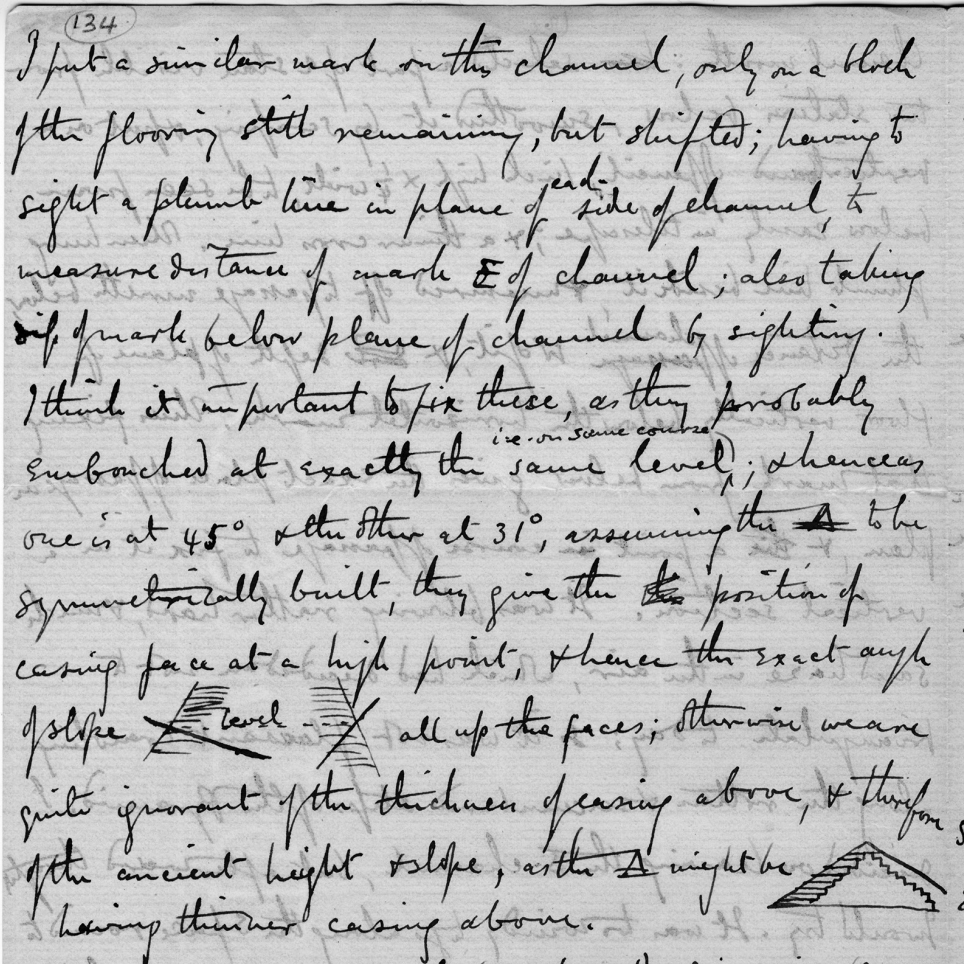 134
I put a similar mark on this channel, only on a block
of the flooring still remaining, but shifted; having to
sight a plumb line in plane of side of channel, to
measure distance of mark E of channel; also taking
of mark below plane of channel by sighting.
I think it important to fix these, as they probably
i.e. on same course
embouched at exactly the same level); & hence as
one is at 45° & the other at 31°, assuming the Δ to be
symmetrically built, they give the position of
casing face at a high point, & hence the exact angle
of slope level all up the faces; otherwise we are
quite ignorant of the thickness of casing above, & therefore
of the ancient height & slope, as the Δ might be
having thinner casing above.